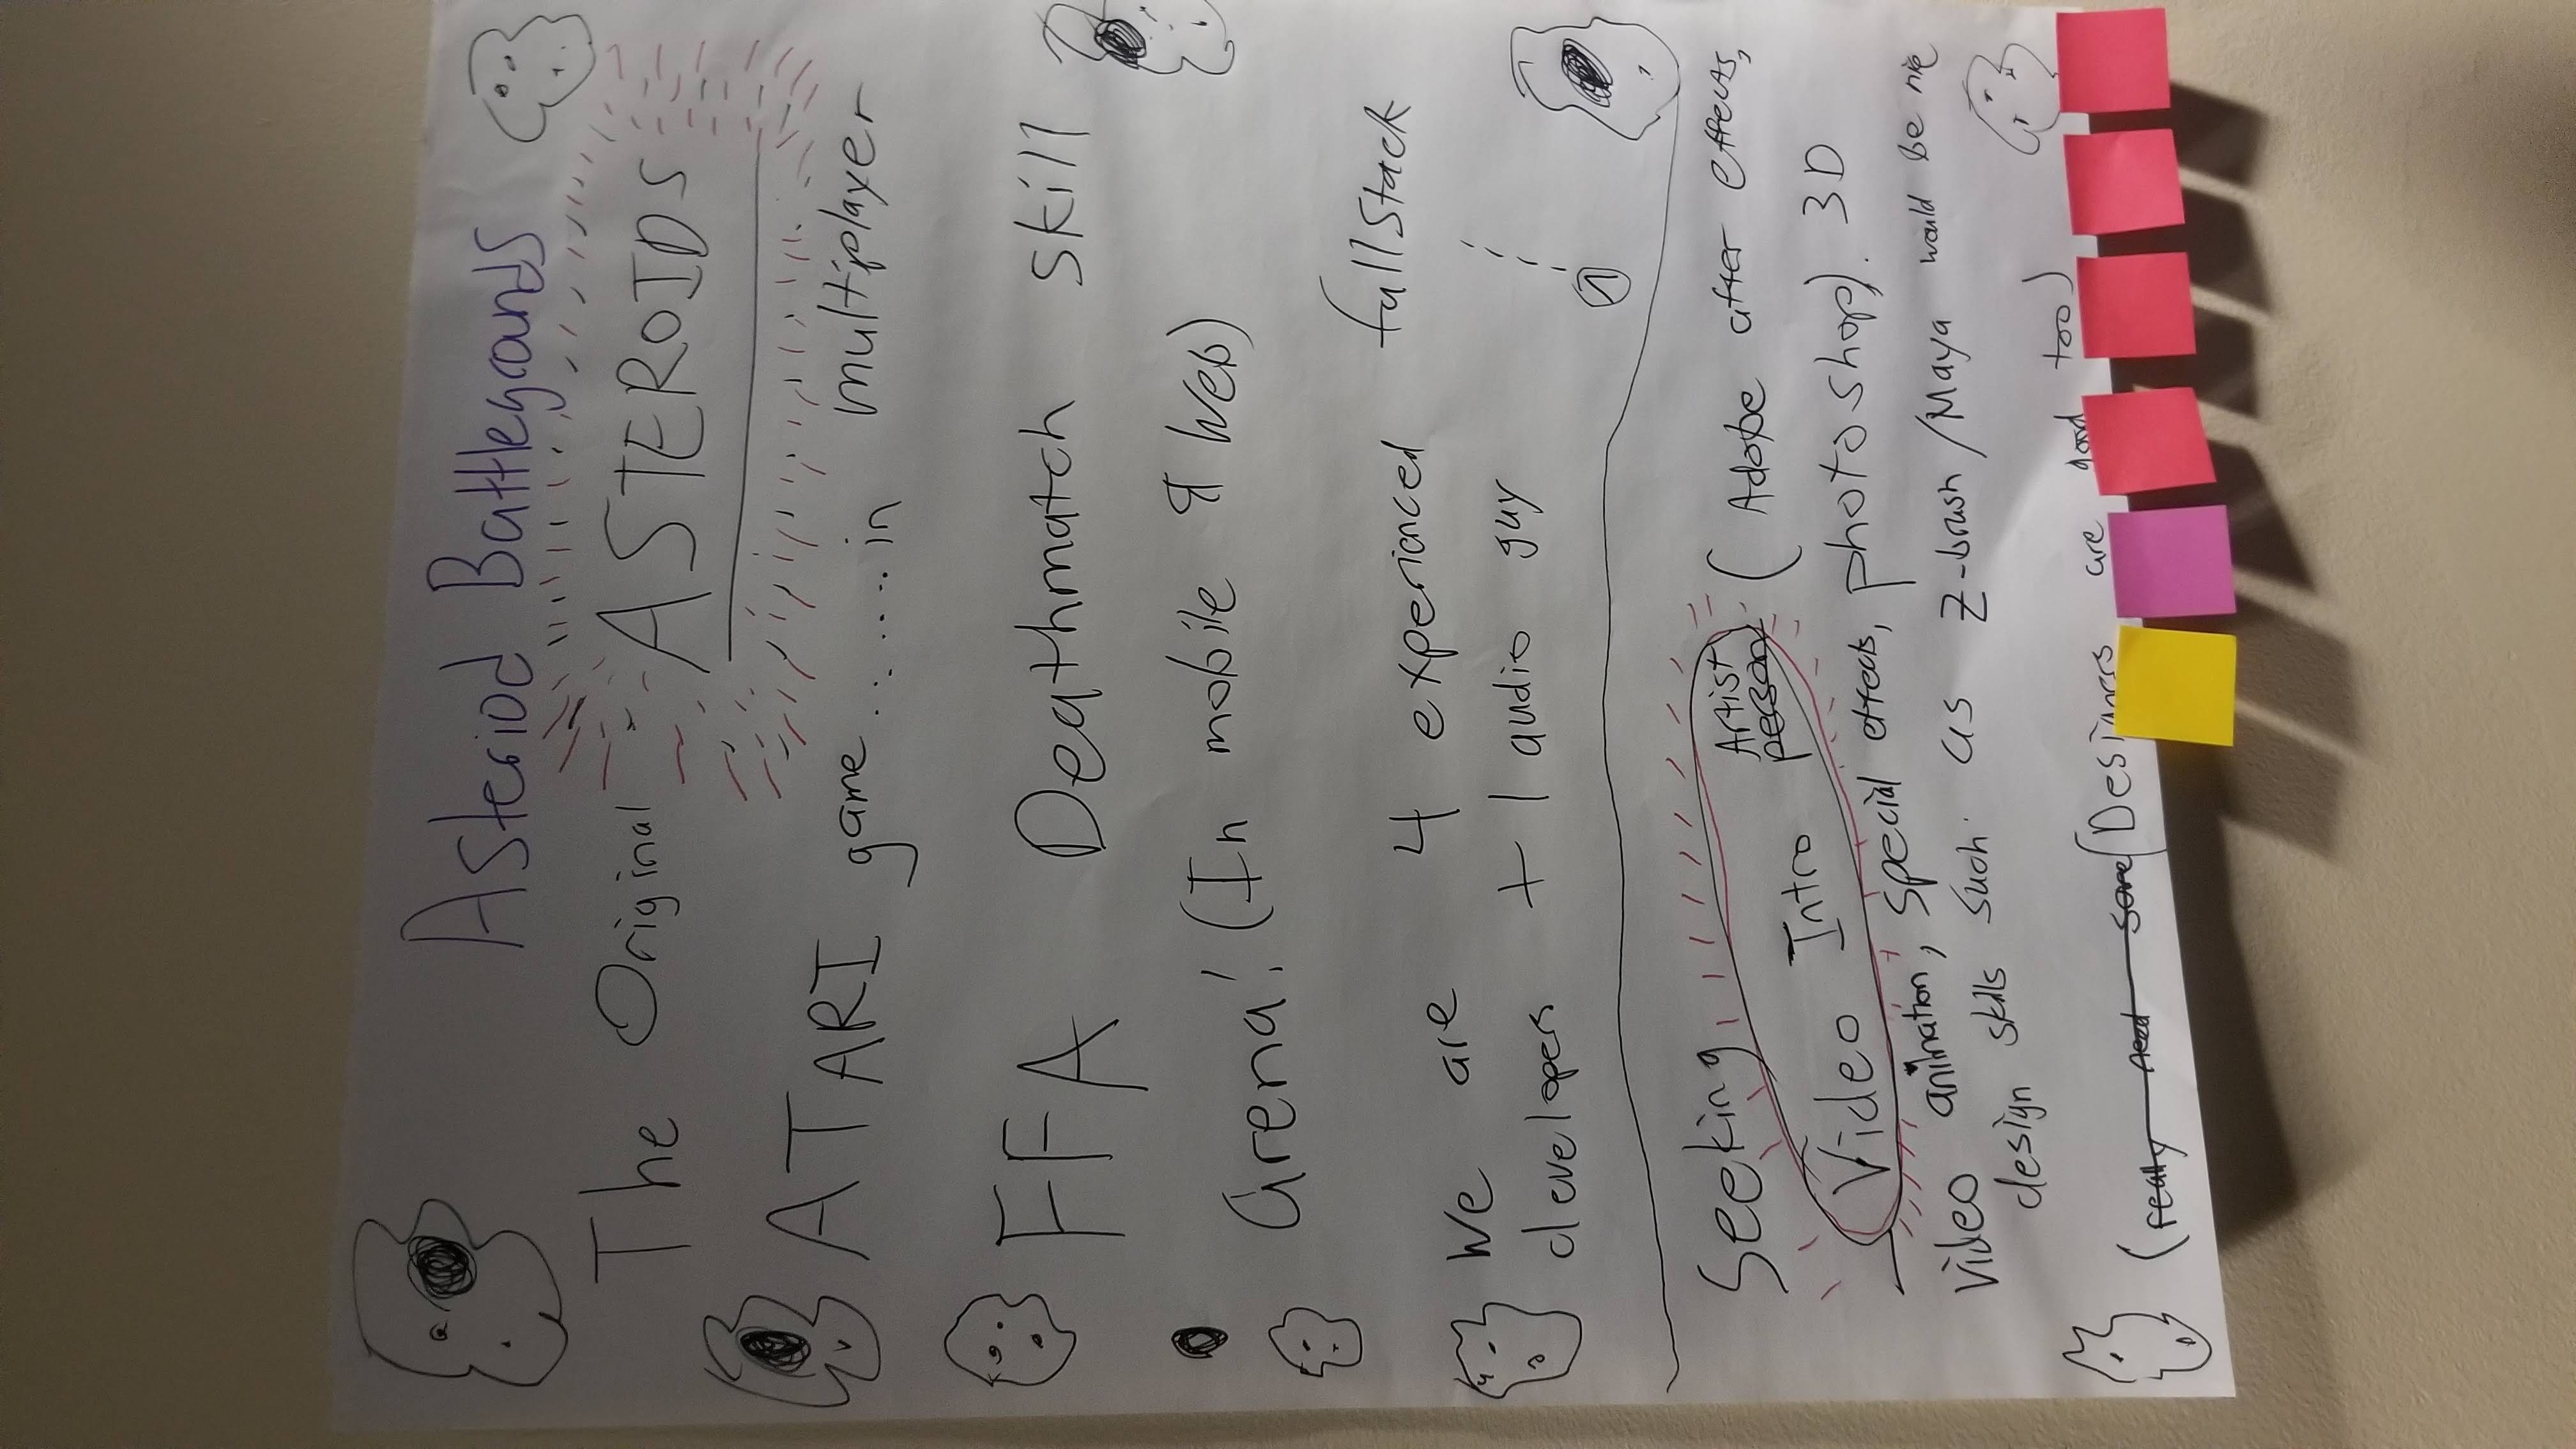 Asteriod Battlegrounds
The Original ASTEROIDS
ATARI game....... in multiplayer
FFA Deathmatch skill
arena! (In mobile & Web)
We are 4 experienced fullstack
developers + 1 audio guy
Seeking
Video Intro Artist person (Adobe after effects,
video animation, special effects, photoshop). 3D
design skills such as Z-brush/Maya would be nice
(really need some (Designers are good too)